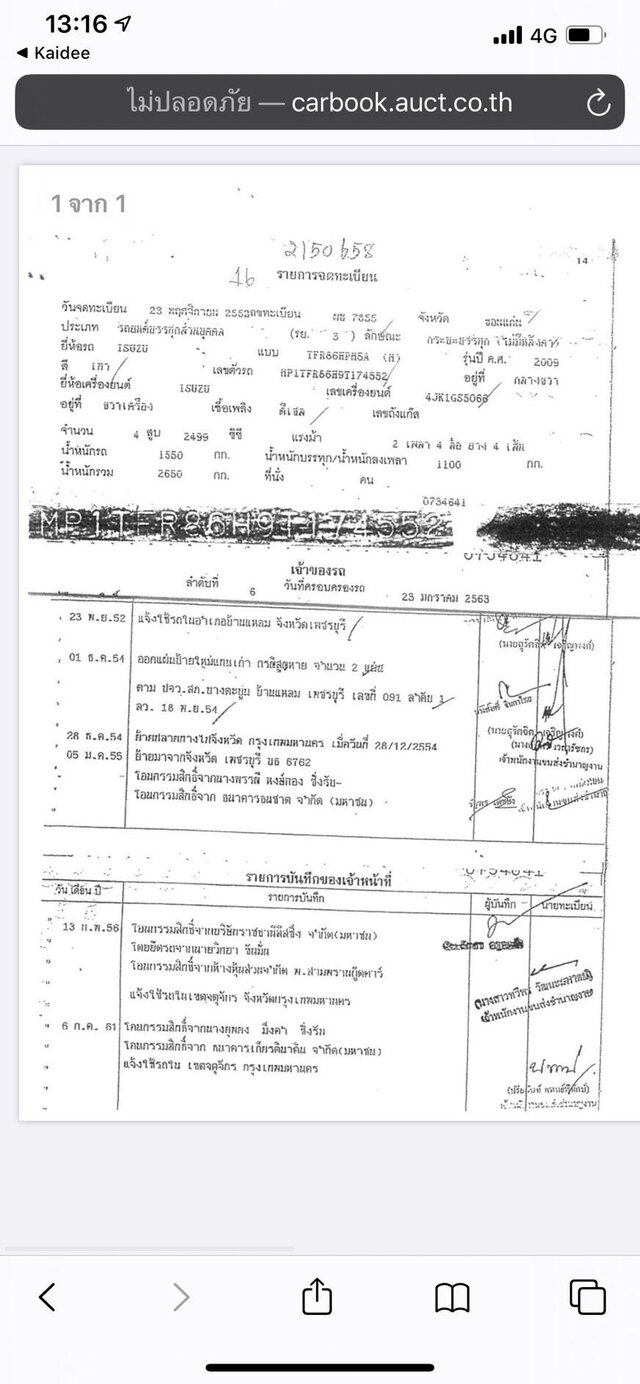 13:16
4G
Kaidee
ไม่ปลอดภัย — carbook.auct.co.th
1 จาก 1
2150658
14
16
รายการจดทะเบียน
วันจดทะเบียน 23 พฤศจิกายน 2552 เลขทะเบียน 7855 จังหวัด ขอนแก่น
ประเภท รถยนต์บรรทุกส่วนบุคคล (รย. 3 ) ลักษณะ กระบะบรรทุก (ไม่มีหลังคา)
ยี่ห้อรถ ISUZU แบบ TFR86HPM5A (M) รุ่นปี ค.ศ. 2009
สี เทา เลขตัวรถ MP1TFR86H9T174552 อยู่ที่ กลางขวา
ยี่ห้อเครื่องยนต์ ISUZU เลขเครื่องยนต์ 4JK1GS5068
อยู่ที่ ขวาเครื่อง เชื้อเพลิง ดีเซล เลขถังแก๊ส
จำนวน 4 สูบ 2499 ซีซี แรงม้า 2 เพลา 4 ล้อ ยาง 4 เส้น
น้ำหนักรถ 1550 กก. น้ำหนักบรรทุก/น้ำหนักลงเพลา 1100 กก.
น้ำหนักรวม 2650 กก. ที่นั่ง คน
0734641
MP1TFR86H9T174552
0734641
เจ้าของรถ
ลำดับที่ 6 วันที่ครอบครองรถ 25 มกราคม 2563
23 พ.ย.52 แจ้งใช้รถในอำเภอบ้านแหลม จังหวัดเพชรบุรี
01 ธ.ค.54 ออกแผ่นป้ายใหม่แทนเก่า กรณีสูญหาย จำนวน 2 แผ่น
ตาม ปจว.สภ.บางตะบูน บ้านแหลม เพชรบุรี เลขที่ 091 ลำดับ 1
ลว. 18 พ.ย.54
28 ธ.ค.54 ย้ายปลายทางไปจังหวัด กรุงเทพมหานคร เมื่อวันที่ 28/12/2554
05 ม.ค.55 ย้ายมาจากจังหวัด เพชรบุรี บธ 6762
เจ้าพนักงานขนส่งชำนาญงาน
โอนกรรมสิทธิ์จากนางพรรณี หงษ์ทอง ซึ่งรับ-
โอนกรรมสิทธิ์จาก ธนาคารธนชาต จำกัด (มหาชน)
0734641
รายการบันทึกของเจ้าหน้าที่
วัน เดือน ปี รายการบันทึก ผู้บันทึก นายทะเบียน
13 ก.พ.56 โอนกรรมสิทธิ์จากบริษัทราชธานีลิสซิ่ง จำกัด(มหาชน)
โดยยึดรถจากนายวิทยา
โอนกรรมสิทธิ์จากห้างหุ้นส่วนจำกัด พ.สามพรานกู๊ดคาร์
แจ้งใช้รถในเขตจตุจักร จังหวัดกรุงเทพมหานคร
เจ้าพนักงานขนส่งชำนาญงาน
6 ก.ค. 61 โอนกรรมสิทธิ์จากนางยุพดง มีงคำ ซึ่งรับ
โอนกรรมสิทธิ์จาก ธนาคารเกียรตินาคิน จำกัด(มหาชน)
แจ้งใช้รถใน เขตจตุจักร กรุงเทพมหานคร